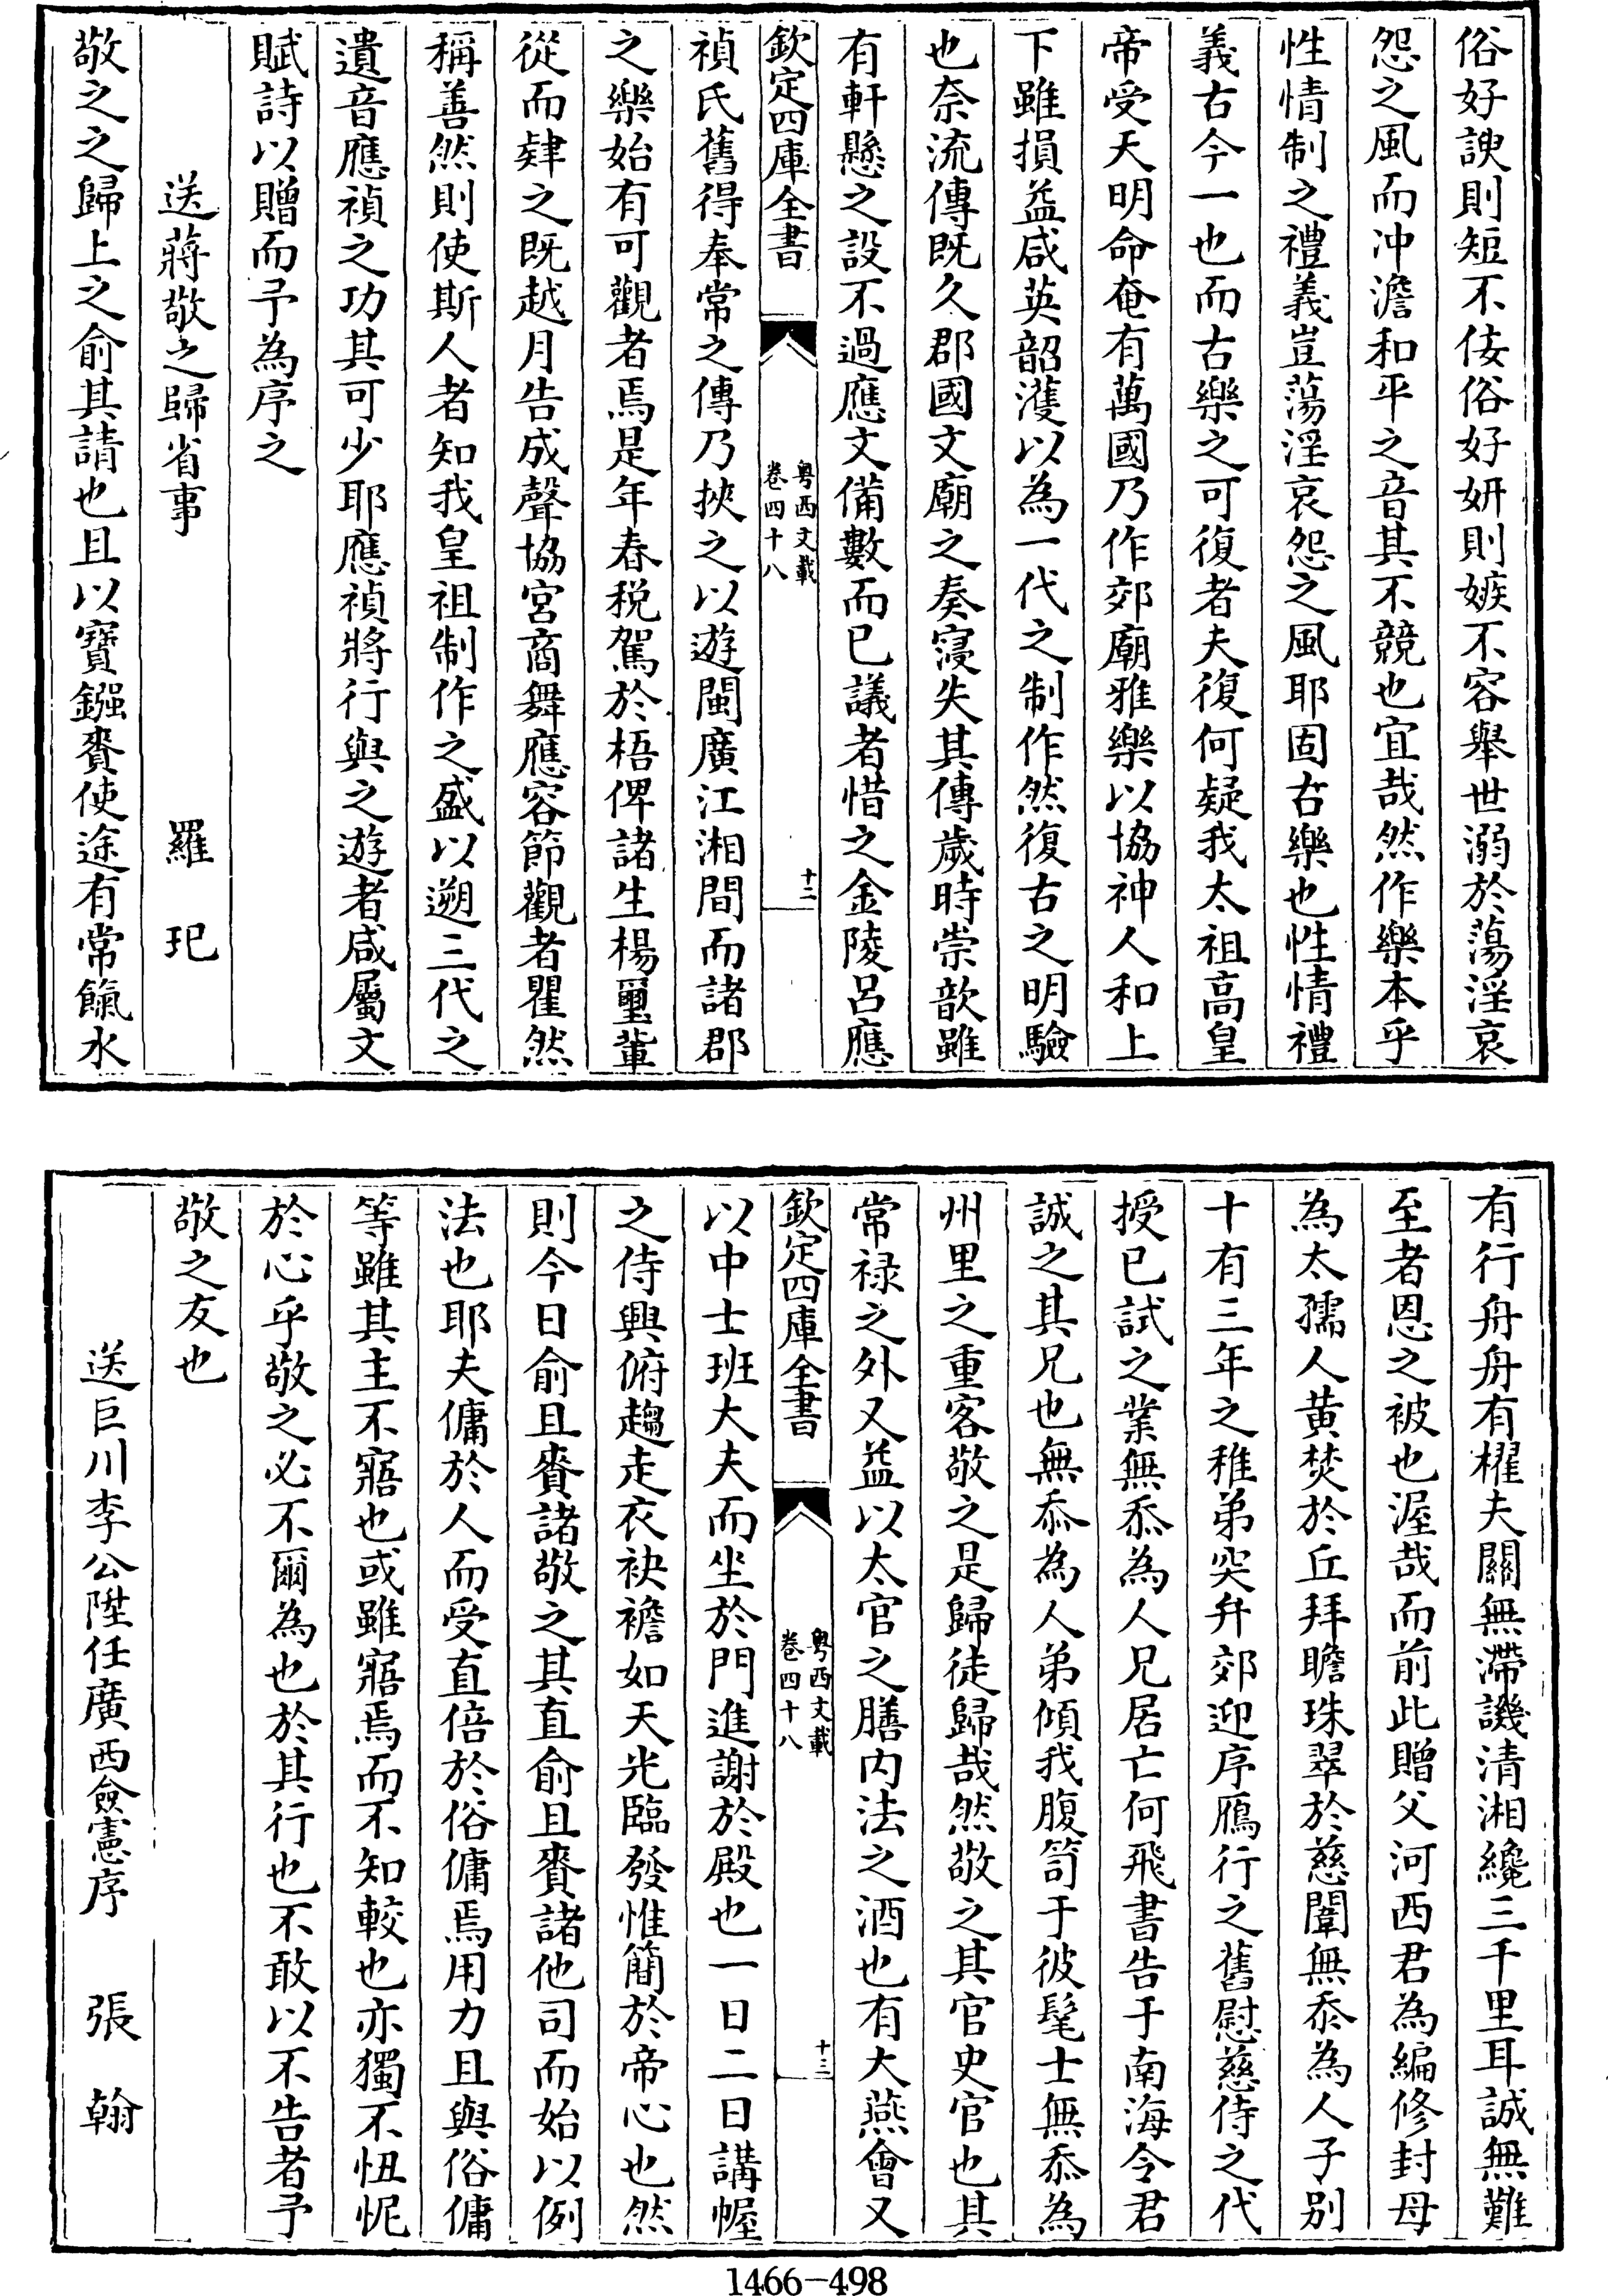 俗好諛則短不佞俗好妍則嫉不容舉世溺於蕩淫哀
怨之風而冲澹和平之音其不競也宜哉然作樂本乎
性情制之禮義豈蕩淫哀怨之風耶固古樂也性情禮
義古今一也而古樂之可復者夫復何疑我太祖高皇
帝受天明命奄有萬國乃作郊廟雅樂以協神人和上
下雖損益咸英韶濩以為一代之制作然復古之明驗
也奈流傳既久郡國文廟之奏寖失其傳歲時崇歆雖
有軒懸之設不過應文備數而已議者惜之金陵呂應
欽定四庫全書
粤西文載
卷四十八
十二
禎氏舊得奉常之傳乃挾之以遊閩廣江湘間而諸郡
之樂始有可觀者焉是年春税駕於梧俾諸生楊璽輩
從而肄之既越月告成聲協宮商舞應容節觀者瞿然
稱善然則使斯人者知我皇祖制作之盛以遡三代之
遺音應禎之功其可少耶應禎將行與之遊者咸屬文
賦詩以贈而予為序之
送蔣敬之歸省事 羅玘
敬之之歸上之俞其請也且以寶鏹賚使途有常餼水
有行舟舟有櫂夫關無滯譏清湘纔三千里耳誠無難
至者恩之被也渥哉而前此贈父河西君為編修封母
為太孺人黄焚於丘拜瞻珠翠於慈闈無忝為人子别
十有三年之稚弟突弁郊迎序鴈行之舊慰慈侍之代
授已試之業無忝為人兄居亡何飛書告于南海令君
誠之其兄也無忝為人弟傾我腹笥于彼髦士無忝為
州里之重客敬之是歸徒歸哉然敬之其官史官也其
常禄之外又益以太官之膳内法之酒也有大燕會又
欽定四庫全書
粤西文載
卷四十八
十三
以中士班大夫而坐於門進謝於殿也一日二日講幄
之侍興俯趨走衣袂襜如天光臨發惟簡於帝心也然
則今日俞且賚諸敬之其直俞且賚諸他司而始以例
法也耶夫傭於人而受直倍於俗傭焉用力且與俗傭
等雖其主不寤也或雖寤焉而不知較也亦獨不忸怩
於心乎敬之必不爾為也於其行也不敢以不告者予
敬之友也
送巨川李公陞任廣西僉憲序 張翰
1466-498